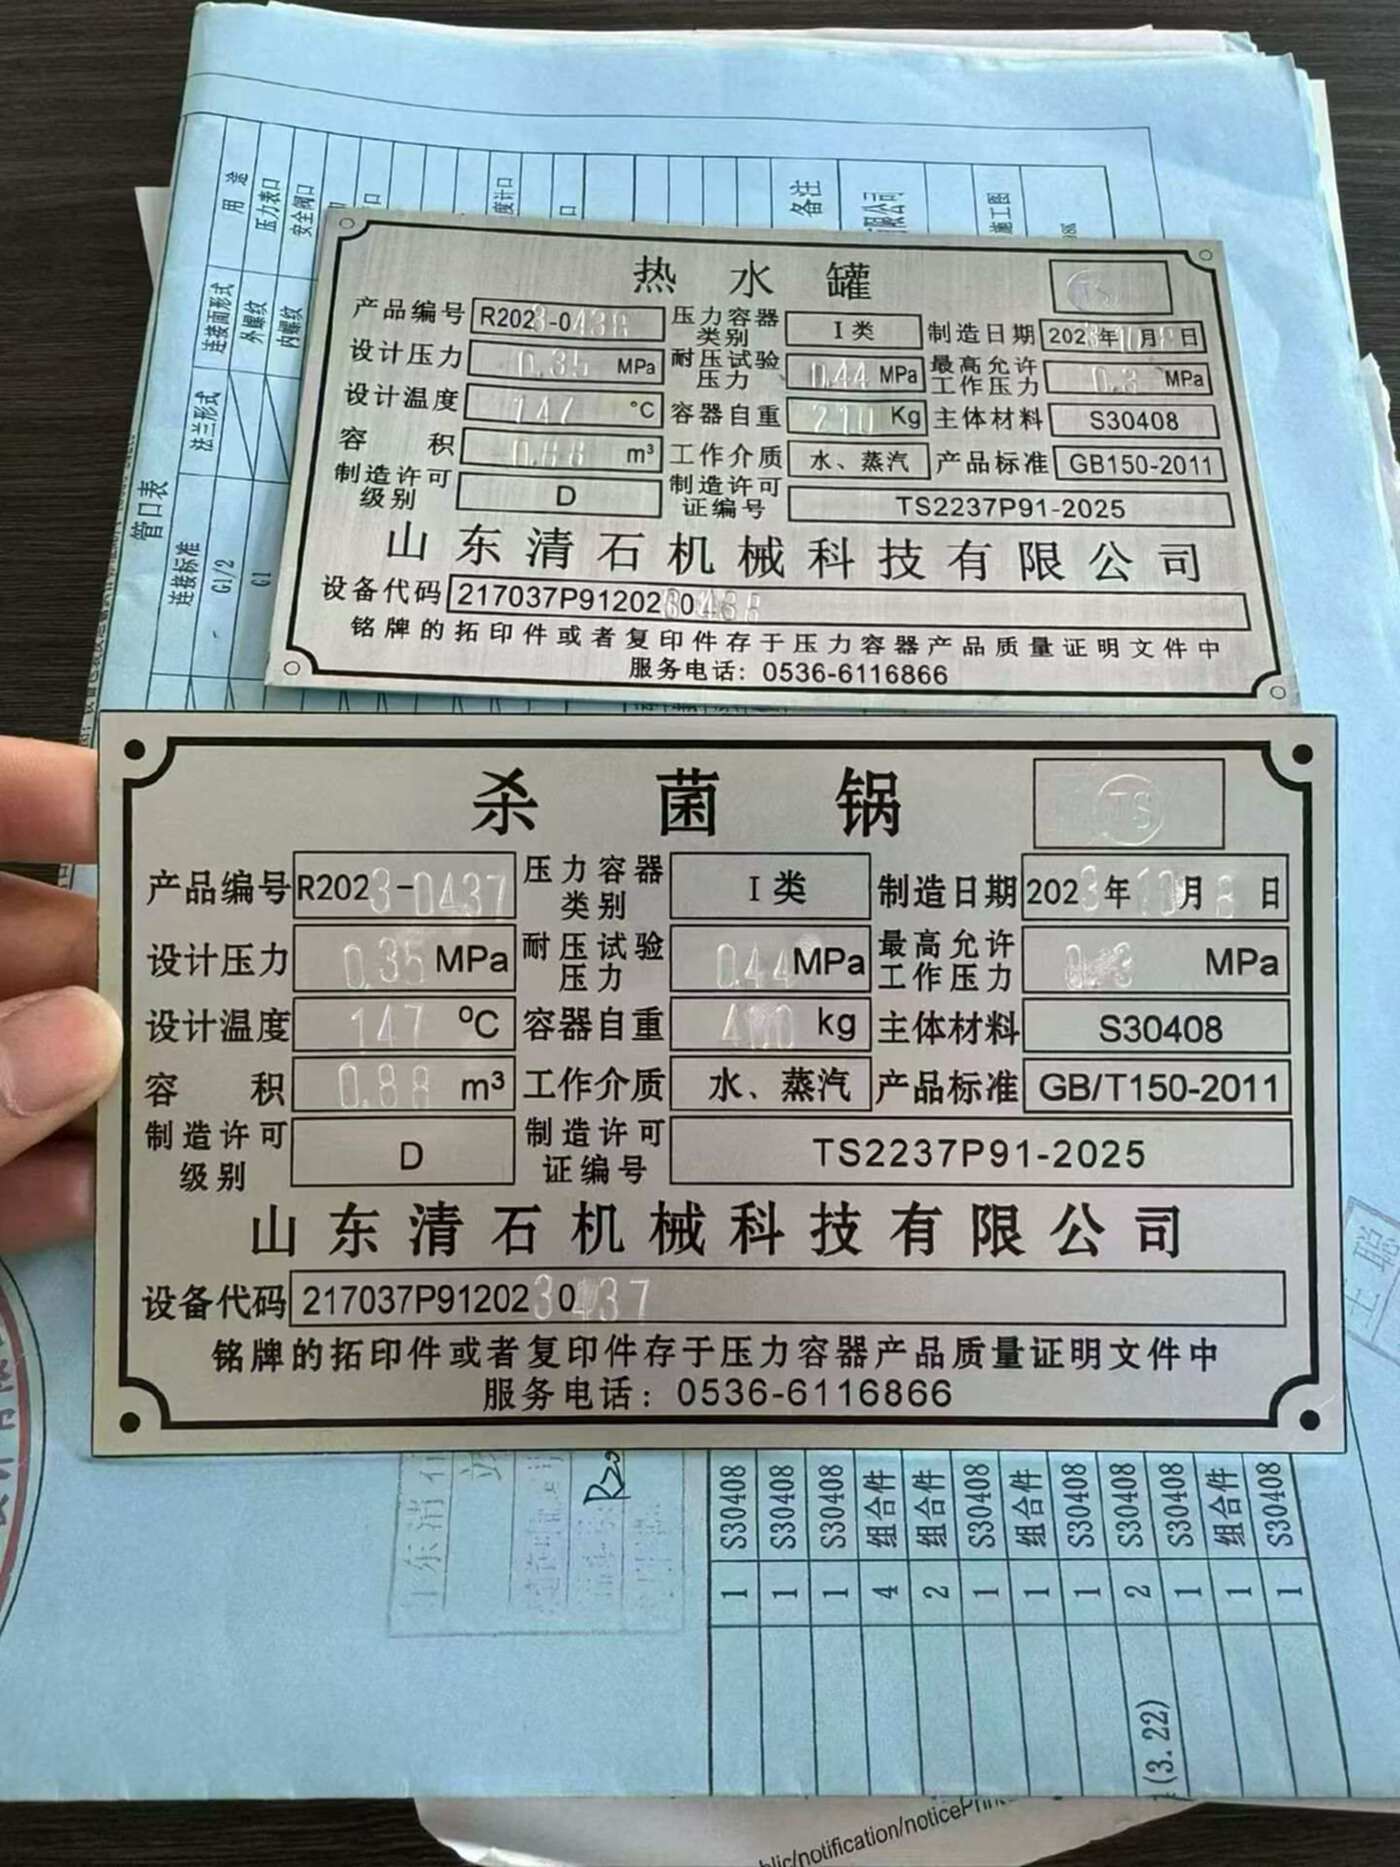 用途
压力表口
安全阀口
度计口
备注
限公司
施工图
连接面形式
外螺纹
内螺纹
法兰形式
管口表
连接标准
G1/2
G1
热水罐
TS
产品编号 R2023-0438 压力容器类别 I类 制造日期 2023年10月8日
设计压力 0.35 MPa 耐压试验压力 0.44 MPa 最高允许工作压力 0.3 MPa
设计温度 147 °C 容器自重 210 Kg 主体材料 S30408
容积 0.88 m³ 工作介质 水、蒸汽 产品标准 GB150-2011
制造许可级别 D 制造许可证编号 TS2237P91-2025
山东清石机械科技有限公司
设备代码 217037P9120230438
铭牌的拓印件或者复印件存于压力容器产品质量证明文件中
服务电话: 0536-6116866
杀菌锅
TS
产品编号 R2023-0437 压力容器类别 I类 制造日期 2023年10月8日
设计压力 0.35 MPa 耐压试验压力 0.44 MPa 最高允许工作压力 0.3 MPa
设计温度 147 °C 容器自重 400 kg 主体材料 S30408
容积 0.88 m³ 工作介质 水、蒸汽 产品标准 GB/T150-2011
制造许可级别 D 制造许可证编号 TS2237P91-2025
山东清石机械科技有限公司
设备代码 217037P9120230437
铭牌的拓印件或者复印件存于压力容器产品质量证明文件中
服务电话: 0536-6116866
1 S30408
1 S30408
1 S30408
4 组合件
2 组合件
1 S30408
1 组合件
1 S30408
2 S30408
1 S30408
1 组合件
1 S30408
(3.22)
blic/notification/noticePrin